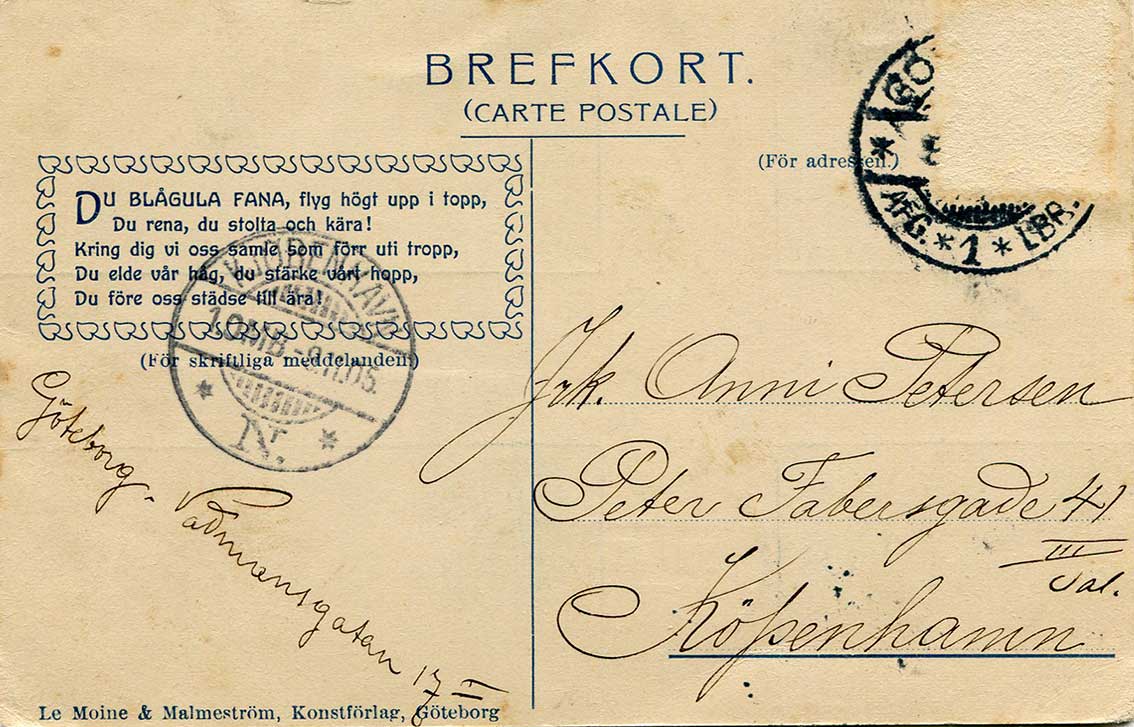 BREFKORT.
(CARTE POSTALE)
(För adressen.)
DU BLÅGULA FANA, flyg högt upp i topp,
Du rena, du stolta och kära!
Kring dig vi oss samle som förr uti tropp,
Du elde vår håg, du stärke vårt hopp,
Du före oss städse till ära!
(För skriftliga meddelanden.)
GÖ
AFG. * 1 * LBR.
KJØBENHAVN
10MB -9.11.05.
* N. *
Frk. Anni Petersen
Peter Fabersgade 41
III
Sal.
Köpenhamn
Göteborg.
Vadmansgatan 17 I
Le Moine & Malmeström, Konstförlag, Göteborg